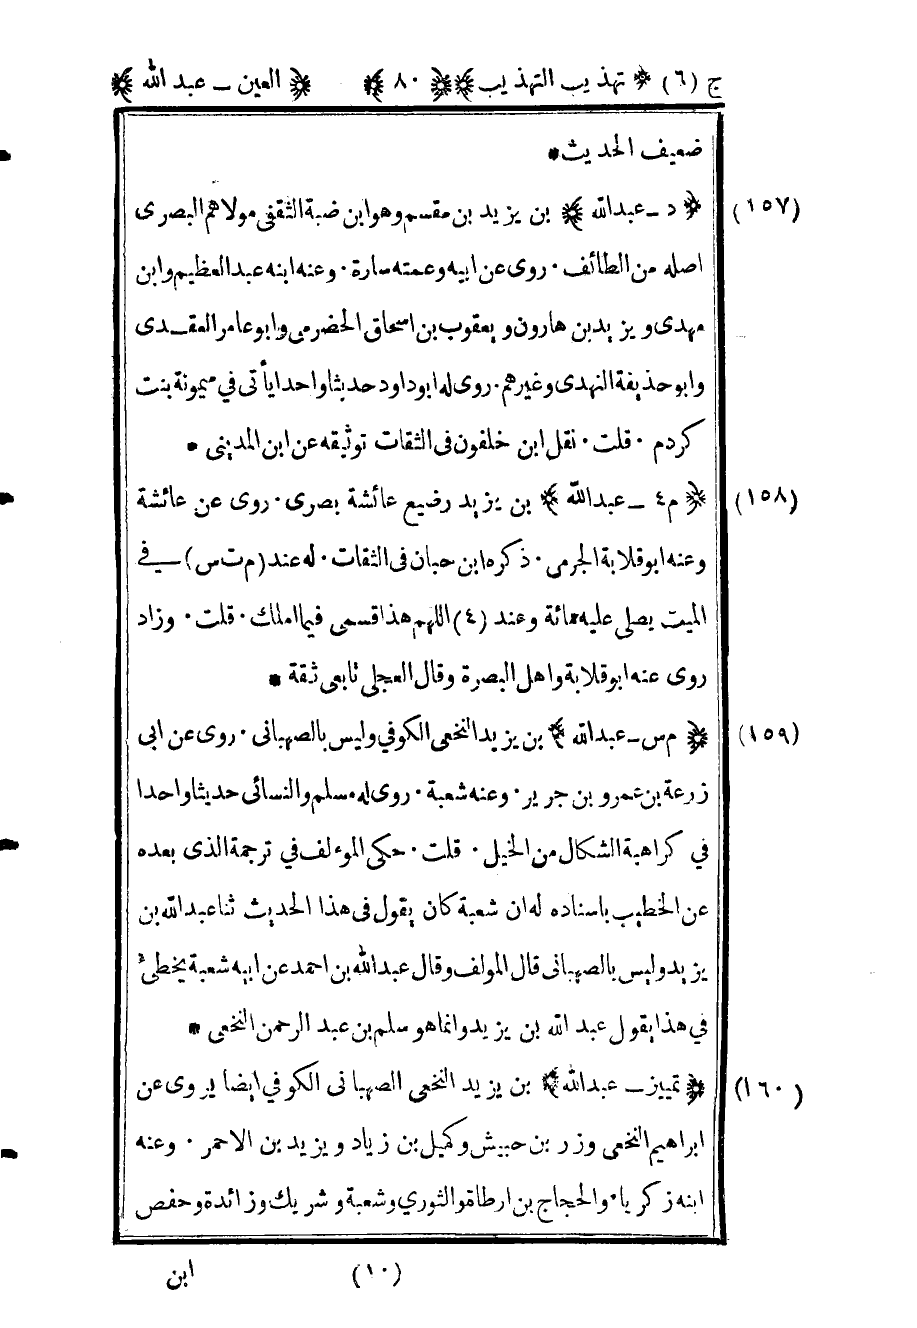 ج (٦) * تهذيب التهذيب ﴿ ٨٠ ﴾ العين ــ عبد الله
ضعيف الحديث *
(١٥٧) ﴿ د ــ عبدالله ﴾ بن يزيد بن مقسم وهو ابن ضبة الثقفي مولاهم البصرى
اصله من الطائف · روى عن ابيه وعمته سارة · وعنه ابنه عبد العظيم وابن
مهدى ويزيد بن هارون ويعقوب بن اسحاق الحضرمي وابو عامر العقدى
وابو حذيفة النهدى وغيرهم · روى له ابو داود حديثا واحدا يأتى في ميمونة بنت
كردم · قلت · نقل ابن خلفون فى الثقات توثيقه عن ابن المدينى *
(١٥٨) ﴿ م٤ ــ عبدالله ﴾ بن يزيد رضيع عائشة بصرى · روى عن عائشة
وعنه ابو قلابة الجرمى · ذكره ابن حبان فى الثقات · له عند (م ت س) في
الميت يصلى عليه مائة وعند (٤) اللهم هذا قسمى فيما املك · قلت · وزاد
روى عنه ابو قلابة واهل البصرة وقال العجلى تابعى ثقة *
(١٥٩) ﴿ م س ــ عبدالله ﴾ بن يزيد النخعى الكوفي وليس بالصهبانى · روى عن ابى
زرعة بن عمرو بن جرير · وعنه شعبة · روى له مسلم والنسائى حديثا واحدا
في كراهية الشكال من الخيل · قلت · حكى المؤلف في ترجمة الذى بعده
عن الخطيب باسناده له ان شعبة كان يقول فى هذا الحديث ثنا عبد الله بن
يزيد وليس بالصهبانى قال المولف وقال عبد الله بن احمد عن ابيه شعبة يخطئ
في هذا يقول عبد الله بن يزيد وانما هو سلم بن عبد الرحمن النخعى *
(١٦٠) ﴿ تمييز ــ عبدالله ﴾ بن يزيد النخعى الصهبانى الكوفي ايضا يروى عن
ابراهيم النخعى وزر بن حبيش وكميل بن زياد ويزيد بن الاحمر · وعنه
ابنه زكريا · والحجاج بن ارطاة والثوري وشعبة وشريك وزائدة وحفص
(١٠) ابن